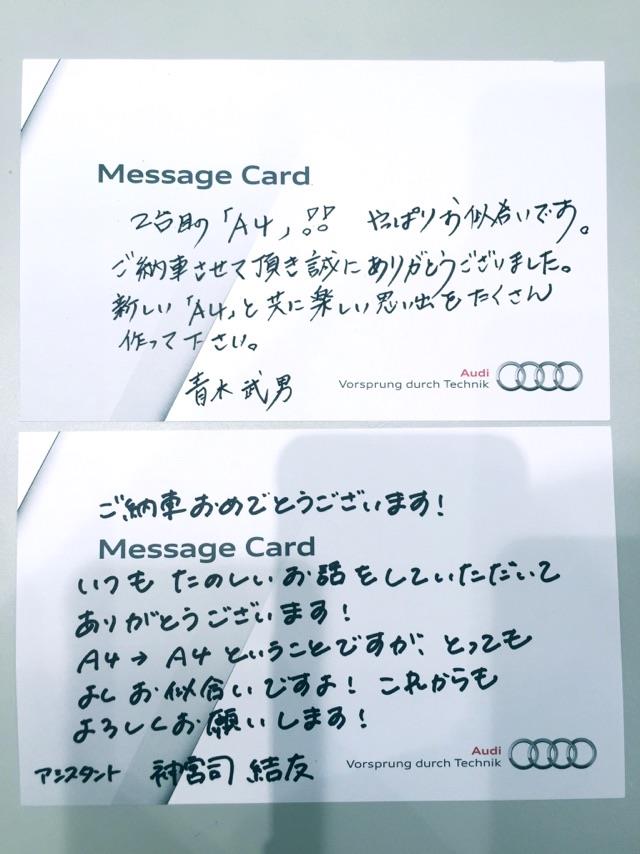 Message Card
2台目の「A4」!! やっぱりお似合いです。
ご納車させて頂き誠にありがとうございました。
新しい「A4」と共に楽しい思い出をたくさん
作って下さい。
青木 武男
Audi
Vorsprung durch Technik
ご納車おめでとうございます!
Message Card
いつも たのしいお話をしていただいて
ありがとうございます!
A4→A4ということですが、とっても
よくお似合いですよ! これからも
よろしくお願いします!
アシスタント 神宮司 結友
Audi
Vorsprung durch Technik